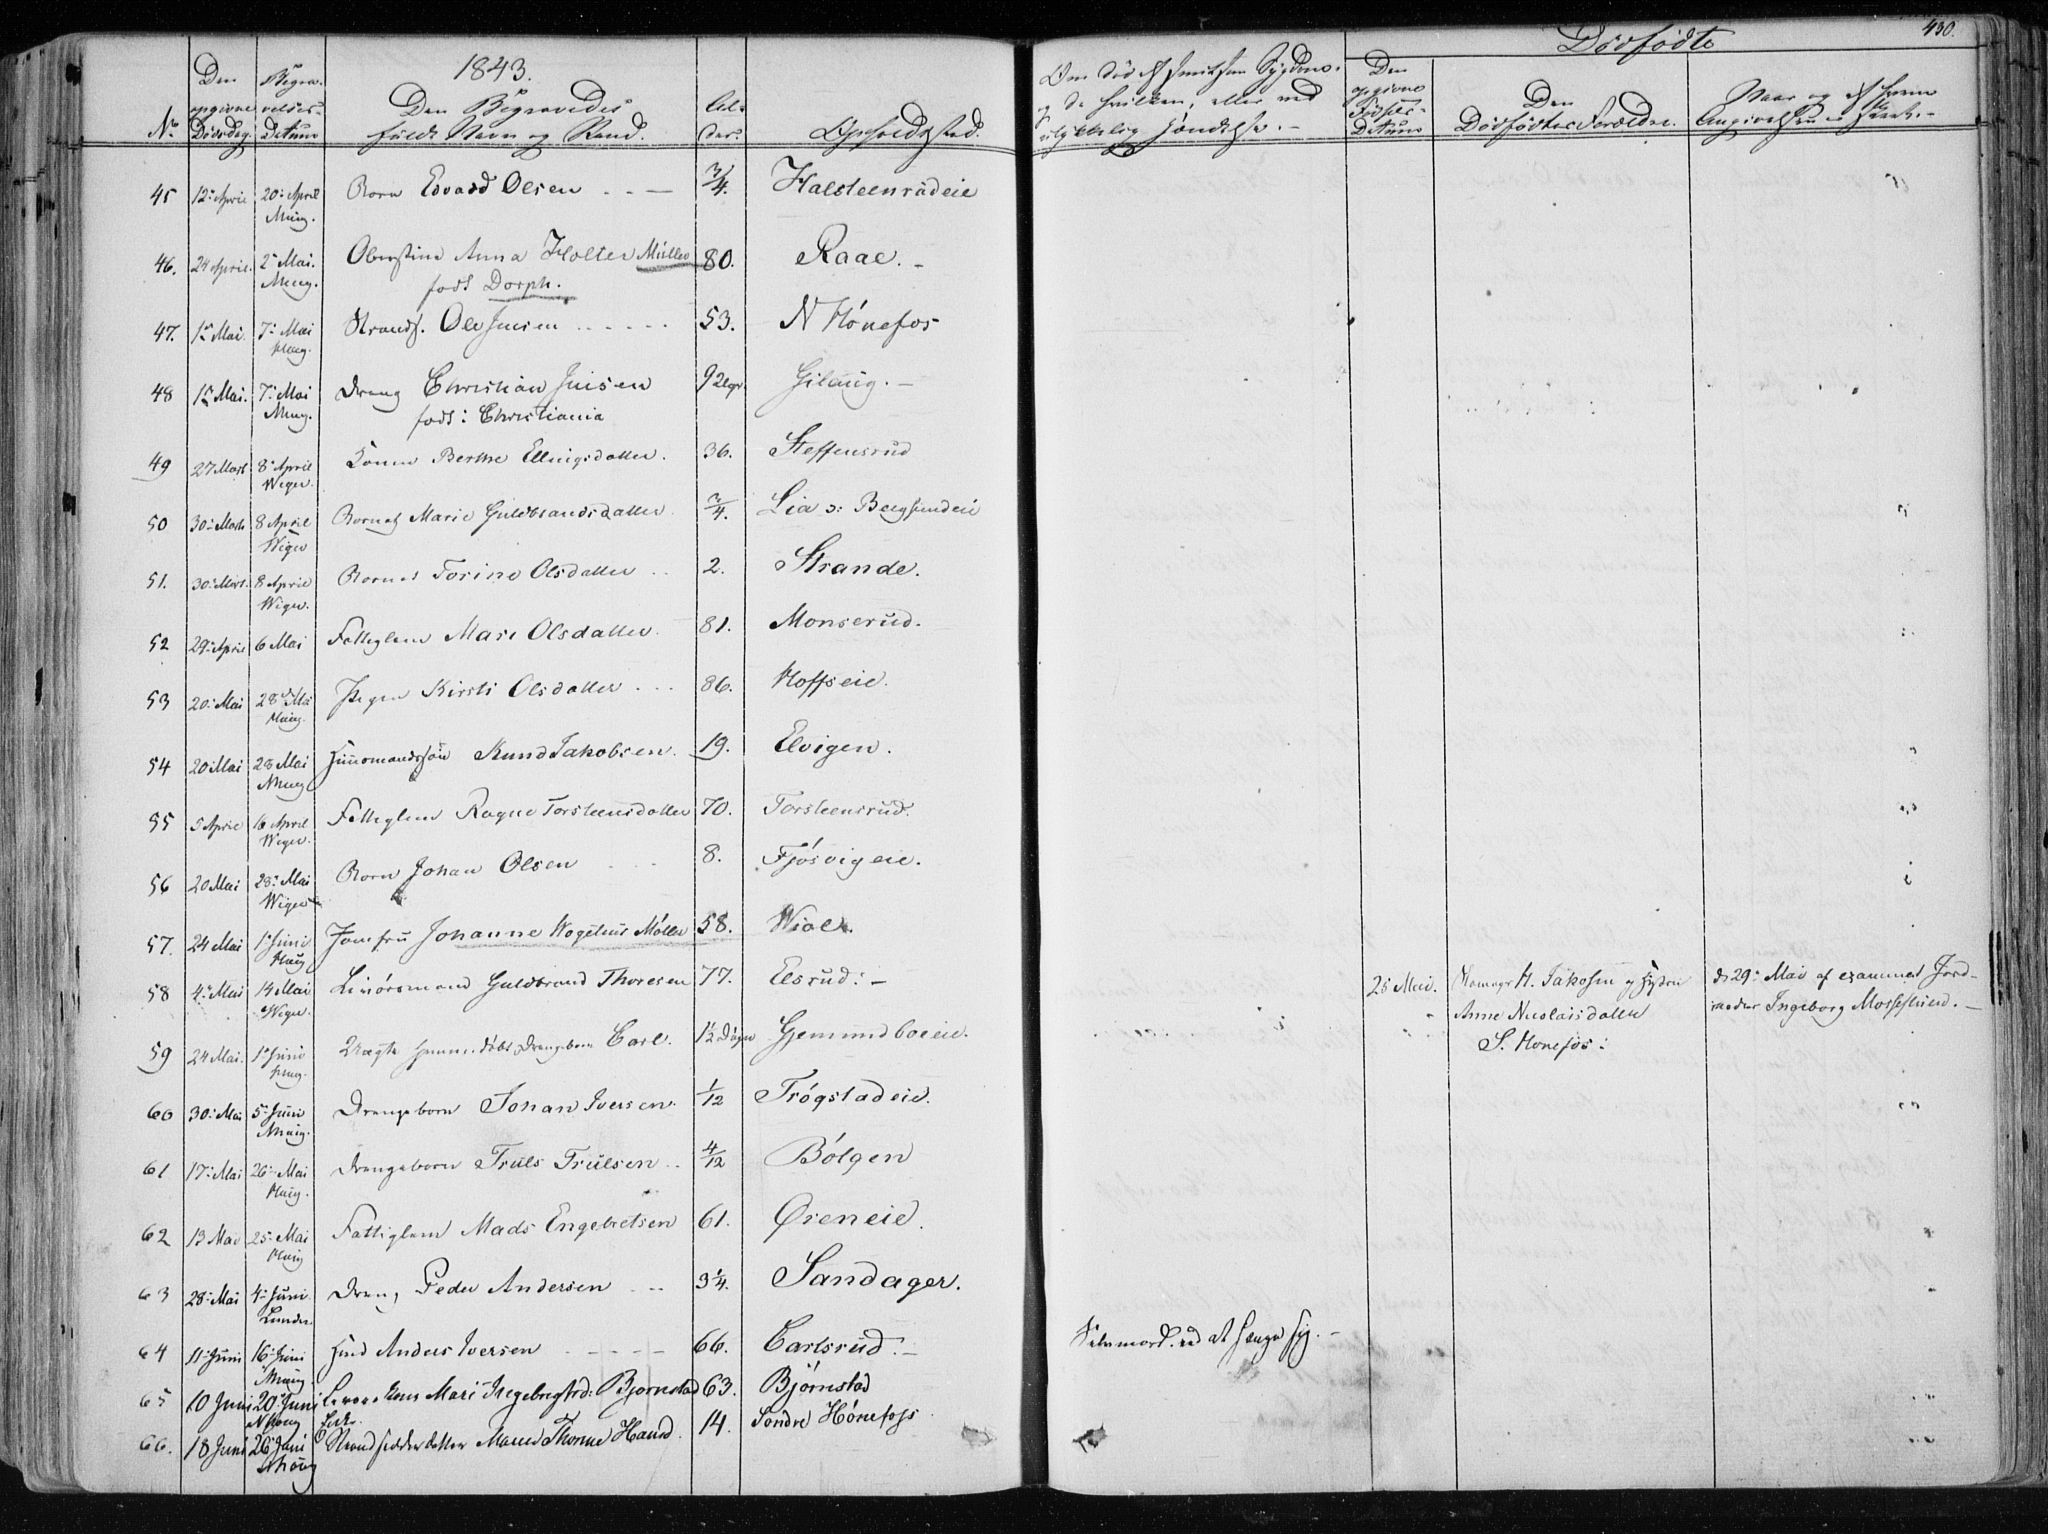 430.
1843.
Dødfødte
Den opgivne Dødsdag
Begravelses-Datum
Den Begravedes fulde Navn og Stand.
Alder.
Opholdssted.
Om død af smitsom Sygdom og da hvilken, eller ved ulykkelig Hændelse. -
Den opgivne Fødsels-Datum
Den Dødfødtes Forældre.
Naar og af hvem Angivelsen er skeet. -
No
45 12 April 20 April Norg. Barn Edvard Olsen 3/4. Halsteenrudeie
46. 24 April. 2 Mai. Norg. Oberstinde Anna Holter Müller født Dorph. 80. Raae. -
47. 1 Mai. 7 Mai Norg. Strands. Ole Jensen 53. N Hónefos
48 1 Mai. 7 Mai Norg. Dreng Christian Jensen født: Christiania 9 Gilaug. -
49 27 Mart 8 April Wiger. Konen Berthe Ellingsdatter. 36. Steffensrud
50 30 Marts 8 April Wiger Barnet Marie Guldbrandsdatter 3/4. Lia o: Bergsundeie
51. 30 Mart. 8 April Wiger. Barnet Torine Olsdatter 2. Strande.
52 29 April 6 Mai Fattiglem Mari Olsdatter. 81. Monserud.
53 20 Mai 28 Mai Norg. Pigen Kirsti Olsdatter 86. Hoffseie.
54 20 Mai 28 Mai Norg Huusmandssøn Knud Jakobsen. 19. Elvigen.
55 5 April 16 April Wiger. Fattiglem Ragne Torsteensdatter 70. Torsteensrud.
56 20 Mai 28 Mai Wiger Barn Johan Olsen 8. Fjósvigeie.
57. 24 Mai 1 Juni Norg Jomfru Johanne Wogelius Móller 58. Wiol.
58 4 Mai 14 Mai Wiger. Livórsmand Guldbrand Thoresen 77. Elsrud: -
25 Mai. H. Jakobsen og Hustru Anne Nicolaisdatter S. Hónefos:
d 29 Mai af examinet Jordmoder Ingeborg Mosseslund. -
59 24 Mai. 1 Juni Norg. Uægte hjemmedøbt Drengebarn Carl. 1½ Døgn Gjemundboeie.
60 30 Mai 5 Juni Norg. Drengebarn Johan Iversen. 1/12 Trógstadeie.
61 17 Mai 26 Mai Norg. Drengebarn Truls Trulsen 4/12 Bólgen
62 13 Mai 25 Mai Norg Fattiglem Mads Engebretsen 61. Øreneie.
63 28 Mai 4 Juni. Lunder. Dreng Peder Andersen 3¼. Sandager.
64 11 Juni 16 Juni Norg. Anders Iversen 66. Carlsrud: -
Selvmord ved at hænge sig. -
65 10 Juni 20 Juni Norg Mari Ingebrigtsd: Bjørnstad 63. Bjørnstad
66. 18 Juni 26 Juni Norg Strandsidderdatter Maren Thorine Hansd. 14. Søndre Hónefoss